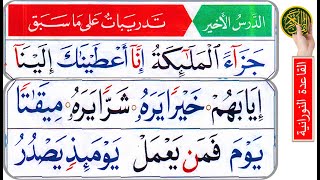 الدَّرْسُ الأَخِير
تَدْرِيبَاتٌ عَلَى مَا سَبَقَ
جَزَآءَ الْمَلٰٓئِكَةُ إِنَّآ أَعْطَيْنٰكَ إِلَيْنَآ
إِيَابَهُمْ خَيْرًا يَرَهُۥ شَرًّا يَرَهُۥ مِيقٰتًا
يَوْمَ فَمَن يَعْمَلْ يَوْمَئِذٍ يَصْدُرُ
القاعدة النورانية